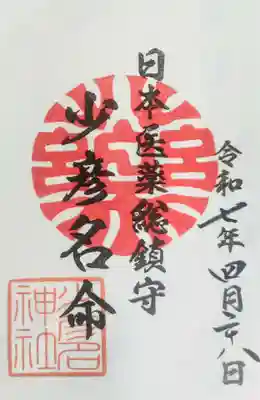 令和七年四月二十八日
日本医薬総鎮守
少彦名命